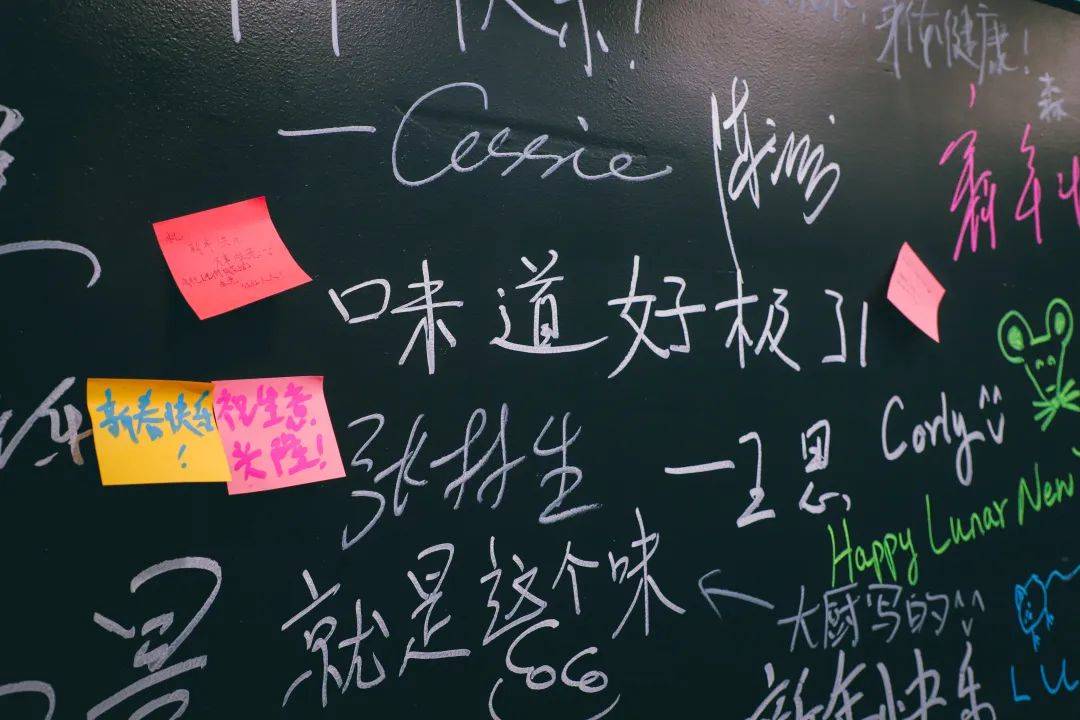 身体健康!
森
— Cassie
新年快
味道好极了
新春快乐!
祝生意
兴隆!
张林生
— 王思
Corly^^
Happy Lunar New
就是这个味
← 大厨写的^^
CoCo
新年快乐
LU